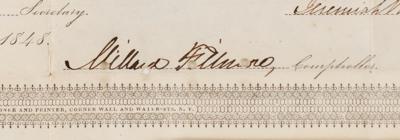 Secretary. Jeremiah
1848.
Millard Fillmore Comptroller.
AND PRINTER, CORNER WALL AND WATER-STS. N. Y.